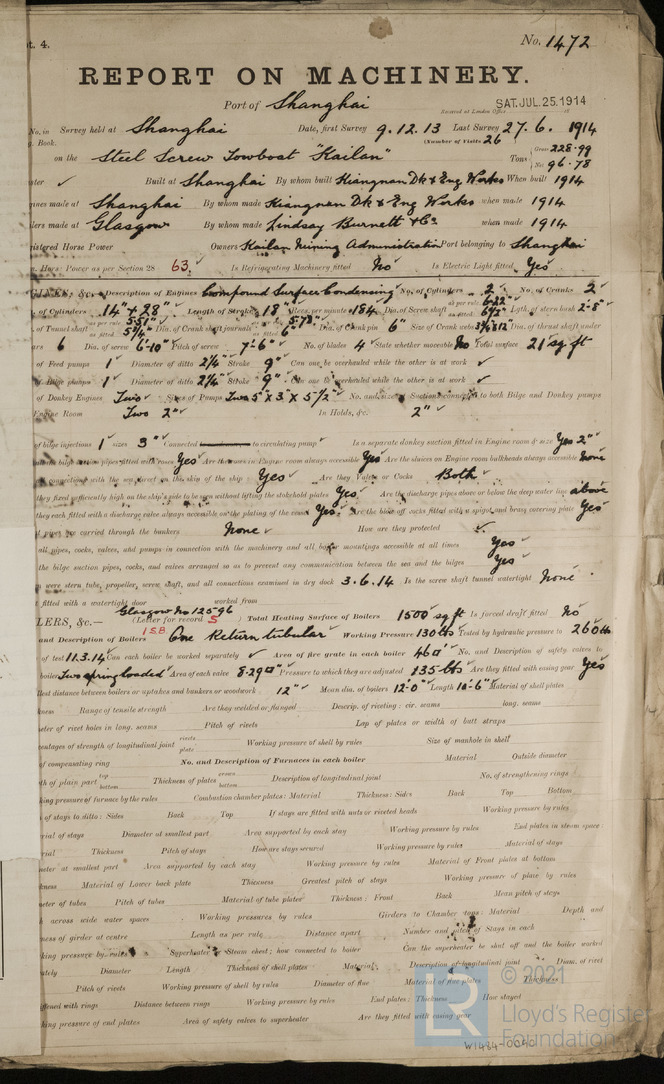 t. 4.
No. 1472
REPORT ON MACHINERY.
Port of Shanghai
Received at London Office SAT. JUL. 25. 1914
No. in Survey held at Shanghai Date, first Survey 9.12.13 Last Survey 27.6. 1914
g. Book. (Number of Visits 26
on the Steel Screw Towboat "Kailan" Tons Gross 228.99 Net 96.78
✓ Built at Shanghai By whom built Kiangnan Dk & Eng Works When built 1914
gines made at Shanghai By whom made Kiangnan Dk & Eng Works when made 1914
ilers made at Glasgow By whom made Lindsay Burnett & Co. when made 1914
gistered Horse Power Owners Kailan Mining Administration Port belonging to Shanghai
Horse Power as per Section 28 63. Is Refrigerating Machinery fitted No Is Electric Light fitted Yes
&c.— Description of Engines Compound Surface Condensing No. of Cylinders 2 No. of Cranks 2
of Cylinders 14" & 28" Length of Stroke 18" Revs. per minute 184 Dia. of Screw shaft Lgth. of stern bush 2'-8"
of Tunnel shaft Dia. of Crank shaft journals 6" Dia. of Crank pin 6" Size of Crank webs Dia. of thrust shaft under
ars 6 Dia. of screw 6'-10" Pitch of screw 7'-6" No. of blades 4 State whether moveable No Total surface 21 sq ft
of Feed pumps 1 Diameter of ditto 2¼" Stroke 9" Can one be overhauled while the other is at work ✓
of Bilge pumps 1 Diameter of ditto 2¼" Stroke 9" Can one be overhauled while the other is at work ✓
of Donkey Engines Two Sizes of Pumps Two 5" x 3" x 5½" No. and size of Suctions connected to both Bilge and Donkey pumps
Engine Room Two 2" In Holds, &c. 2"
of bilge injections 1 sizes 3" Connected to circulating pump ✓ Is a separate donkey suction fitted in Engine room & size Yes 2"
the bilge suction pipes fitted with roses Yes Are the roses in Engine room always accessible Yes Are the sluices on Engine room bulkheads always accessible None
connections with the sea direct on the skin of the ship Yes Are they Valves or Cocks Both
they fixed sufficiently high on the ship's side to be seen without lifting the stokehold plates Yes Are the discharge pipes above or below the deep water line above
they each fitted with a discharge valve always accessible on the plating of the vessel Yes Are the blow off cocks fitted with a spigot and brass covering plate Yes
pipes are carried through the bunkers None How are they protected ✓
all pipes, cocks, valves, and pumps in connection with the machinery and all boiler mountings accessible at all times Yes
the bilge suction pipes, cocks, and valves arranged so as to prevent any communication between the sea and the bilges Yes
were stern tube, propeller, screw shaft, and all connections examined in dry dock 3.6.14 Is the screw shaft tunnel watertight None
fitted with a watertight door worked from
Glasgow No 12596
LERS, &c.— (Letter for record S) Total Heating Surface of Boilers 1500 sq ft Is forced draft fitted No
and Description of Boilers 1SB One Return tubular Working Pressure 130 lbs Tested by hydraulic pressure to 260 lbs
of test 11.3.14 Can each boiler be worked separately ✓ Area of fire grate in each boiler 46 □' No. and Description of safety valves to
boiler Two spring loaded Area of each valve 8.29 □" Pressure to which they are adjusted 135 lbs Are they fitted with easing gear Yes
llest distance between boilers or uptakes and bunkers or woodwork 12" Mean dia. of boilers 12'-0" Length 10'-6" Material of shell plates
kness Range of tensile strength Are they welded or flanged Descrip. of riveting: cir. seams long. seams
meter of rivet holes in long. seams Pitch of rivets Lap of plates or width of butt straps
centages of strength of longitudinal joint rivets plate Working pressure of shell by rules Size of manhole in shell
of compensating ring No. and Description of Furnaces in each boiler Material Outside diameter
th of plain part top bottom Thickness of plates crown bottom Description of longitudinal joint No. of strengthening rings
king pressure of furnace by the rules Combustion chamber plates: Material Thickness: Sides Back Top Bottom
of stays to ditto: Sides Back Top If stays are fitted with nuts or riveted heads Working pressure by rules
rial of stays Diameter at smallest part Area supported by each stay Working pressure by rules End plates in steam space:
rial Thickness Pitch of stays How are stays secured Working pressure by rules Material of stays
meter at smallest part Area supported by each stay Working pressure by rules Material of Front plates at bottom
kness Material of Lower back plate Thickness Greatest pitch of stays Working pressure of plate by rules
meter of tubes Pitch of tubes Material of tube plates Thickness: Front Back Mean pitch of stays
h across wide water spaces Working pressures by rules Girders to Chamber tops: Material Depth and
kness of girder at centre Length as per rule Distance apart Number and pitch of Stays in each
king pressure by rules Superheater or Steam chest; how connected to boiler Can the superheater be shut off and the boiler worked
ately Diameter Length Thickness of shell plates Material Description of longitudinal joint Diam. of rivet
Pitch of rivets Working pressure of shell by rules Diameter of flue Material of flue plates Thickness
iffened with rings Distance between rings Working pressure by rules End plates: Thickness How stayed
king pressure of end plates Area of safety valves to superheater Are they fitted with easing gear
LR © 2021
Lloyd's Register
Foundation
W1484-0040